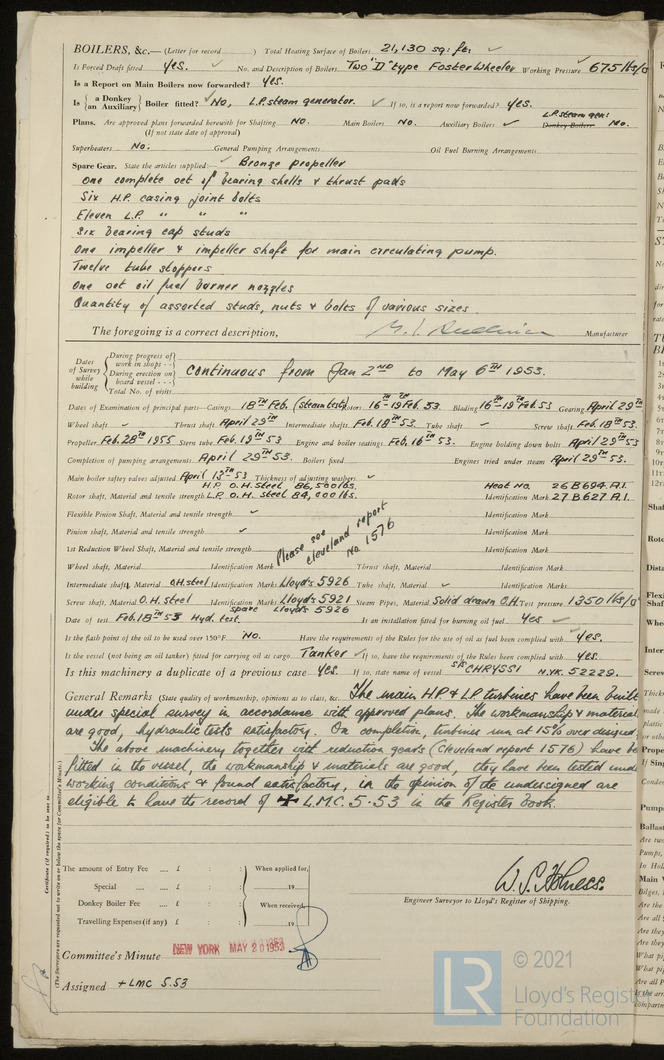 BOILERS, &c.— (Letter for record ) Total Heating Surface of Boilers 21,130 sq: ft. ✓
Is Forced Draft fitted Yes. ✓ No. and Description of Boilers Two "D" type Foster Wheeler Working Pressure 675 lbs/□
Is a Report on Main Boilers now forwarded? Yes.
Is {a Donkey / an Auxiliary} Boiler fitted? ✓ No, L.P. steam generator. ✓ If so, is a report now forwarded? Yes.
L.P. steam gen:
Plans. Are approved plans forwarded herewith for Shafting No. Main Boilers No. Auxiliary Boilers ✓ Donkey Boilers No.
(If not state date of approval)
Superheaters No. General Pumping Arrangements Oil Fuel Burning Arrangements
Spare Gear. State the articles supplied: ✓ Bronze Propeller
One complete set of bearing shells & thrust pads
Six H.P. casing joint bolts
Eleven L.P. " " "
Six bearing cap studs
One impeller & impeller shaft for main circulating pump.
Twelve tube stoppers
One set oil fuel burner nozzles
Quantity of assorted studs, nuts & bolts of various sizes
The foregoing is a correct description, Manufacturer
Dates of Survey while building
During progress of work in shops - -
During erection on board vessel - - -
Total No. of visits
Continuous from Jan 2ND to May 6TH 1953.
Dates of Examination of principal parts—Casings 18TH Feb. (steam test) Rotors 16TH-19TH Feb. 53. Blading 16TH-19TH Feb 53 Gearing April 29TH
Wheel shaft ✓ Thrust shaft April 29TH Intermediate shafts Feb. 18TH 53. Tube shaft ✓ Screw shaft Feb. 18TH 53.
Propeller Feb. 28TH 1955 Stern tube Feb. 19TH 53 Engine and boiler seatings Feb. 16TH 53. Engine holding down bolts April 29TH 53
Completion of pumping arrangements April 29TH 53. Boilers fixed Engines tried under steam April 29TH 53.
Main boiler safety valves adjusted April 13TH 53 Thickness of adjusting washers ✓
H.P. O.H. Steel 86,500 lbs. Heat No. 26B694.A.1.
Rotor shaft, Material and tensile strength L.P. O.H. Steel 84,000 lbs. Identification Mark 27B627 A.1.
Flexible Pinion Shaft, Material and tensile strength ✓ Identification Mark
Pinion shaft, Material and tensile strength ✓ Identification Mark
1st Reduction Wheel Shaft, Material and tensile strength Identification Mark
Please see Cleveland report No. 1576
Wheel shaft, Material Identification Mark Thrust shaft, Material Identification Mark
Intermediate shafts, Material O.H. steel Identification Marks Lloyd's 5926 Tube shaft, Material ✓ Identification Marks
Screw shaft, Material O.H. steel Identification Marks Lloyd's 5921 Steam Pipes, Material Solid drawn O.H. Test pressure 1350 lbs/□
spare Lloyd's 5926
Date of test Feb. 18TH 53 Hyd. test. Is an installation fitted for burning oil fuel Yes ✓
Is the flash point of the oil to be used over 150°F. No. Have the requirements of the Rules for the use of oil as fuel been complied with Yes.
Is the vessel (not being an oil tanker) fitted for carrying oil as cargo Tanker ✓ If so, have the requirements of the Rules been complied with Yes.
Is this machinery a duplicate of a previous case Yes. If so, state name of vessel S/S CHRYSSI N.YK. 52229.
General Remarks (State quality of workmanship, opinions as to class, &c. The main HP & LP turbines have been built
under special survey in accordance with approved plans. The workmanship & material
are good, hydraulic tests satisfactory. On completion, turbines run at 15% over designed
The above machinery together with reduction gears (Cleveland report 1576) have be
fitted in the vessel, the workmanship & materials are good, they have been tested unde
working conditions & found satisfactory, in the opinion of the undersigned are
eligible to have the record of ✠ L.M.C. 5.53 in the Register Book.
The amount of Entry Fee .... £ : : When applied for,
Special .... .... £ : : 19
Donkey Boiler Fee .... £ : : When received,
Travelling Expenses (if any) £ : : 19
W. S. Holness.
Engineer Surveyor to Lloyd's Register of Shipping.
Committee's Minute NEW YORK MAY 20 1953
Assigned + LMC 5.53
Certificate (if required) to be sent to
(The Surveyors are requested not to write on or below the space for Committee's Minute.)
LR
© 2021
Lloyd's Register
Foundation